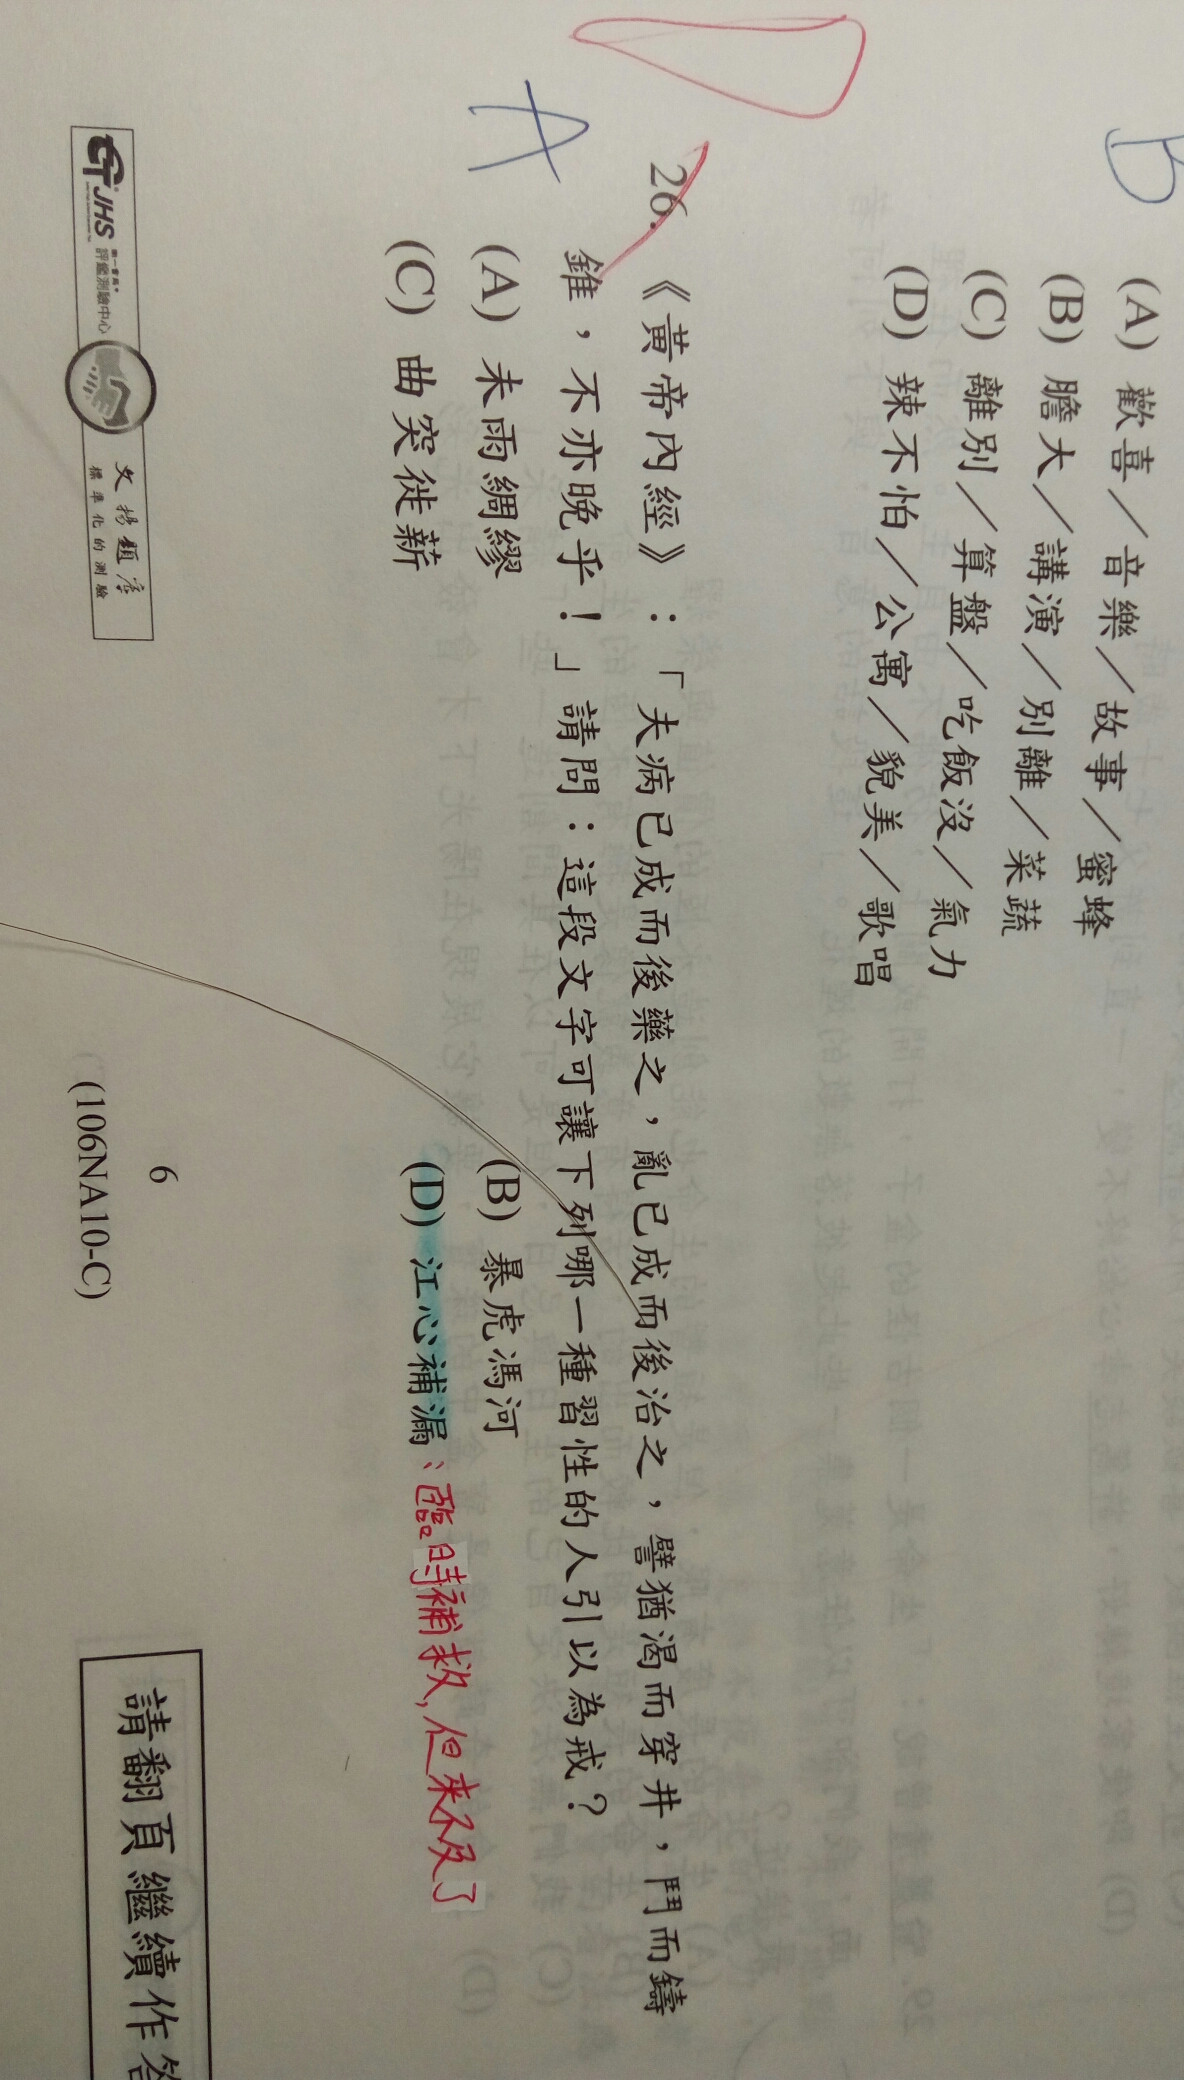 B
(A) 歡喜／音樂／故事／蜜蜂
(B) 膽大／講演／別離／菜蔬
(C) 離別／算盤／吃飯沒／氣力
(D) 辣不怕／公寓／貌美／歌唱
A
26. 《黃帝內經》：「夫病已成而後藥之，亂已成而後治之，譬猶渴而穿井，鬥而鑄
錐，不亦晚乎！」請問：這段文字可讓下列哪一種習性的人引以為戒？
(A) 未雨綢繆 (B) 暴虎馮河
(C) 曲突徙薪 (D) 江心補漏：臨時補救，但來不及了
JHS 評鑑測驗中心
文揚題庫
標準化的測驗
6
(106NA10-C)
請翻頁繼續作答